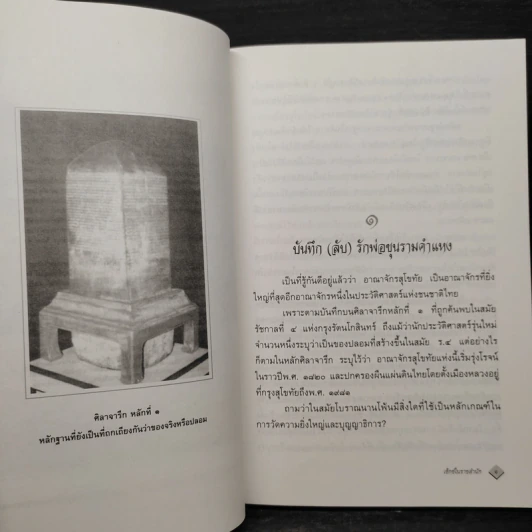 ศิลาจารึก หลักที่ ๑
หลักฐานที่ยังเป็นที่ถกเถียงกันว่าของจริงหรือปลอม
๑
บันทึก (ลับ) รักพ่อขุนรามคำแหง
เป็นที่รู้กันดีอยู่แล้วว่า อาณาจักรสุโขทัย เป็นอาณาจักรที่ยิ่ง
ใหญ่ที่สุดอีกอาณาจักรหนึ่งในประวัติศาสตร์แห่งชนชาติไทย
เพราะตามบันทึกบนศิลาจารึกหลักที่ ๑ ที่ถูกค้นพบในสมัย
รัชกาลที่ ๔ แห่งกรุงรัตนโกสินทร์ ถึงแม้ว่านักประวัติศาสตร์รุ่นใหม่
จำนวนหนึ่งระบุว่าเป็นของปลอมที่สร้างขึ้นในสมัย ร.๔ แต่อย่างไร
ก็ตามในหลักศิลาจารึก ระบุไว้ว่า อาณาจักรสุโขทัยแห่งนี้เริ่มรุ่งโรจน์
ในราวปีพ.ศ. ๑๘๒๐ และปกครองผืนแผ่นดินไทยโดยตั้งเมืองหลวงอยู่
ที่กรุงสุโขทัยถึงพ.ศ. ๑๙๘๑
ถามว่าในสมัยโบราณนานโพ้นมีสิ่งใดที่ใช้เป็นหลักเกณฑ์ใน
การวัดความยิ่งใหญ่และบุญญาธิการ?